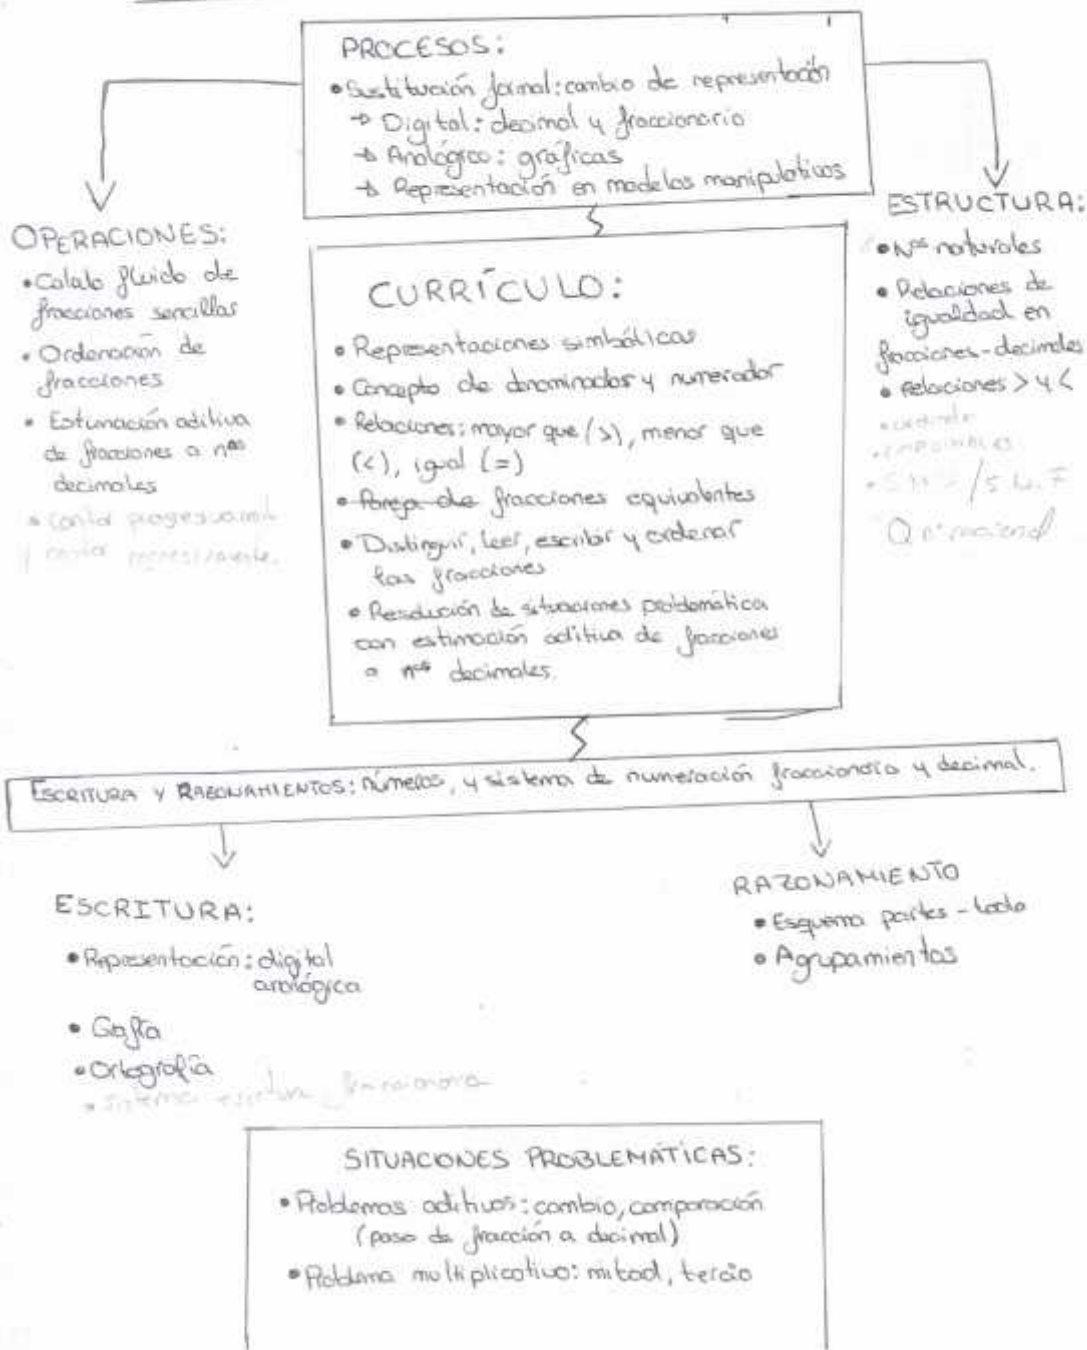 PROCESOS:
• Sustitución formal: cambio de representación
→ Digital: decimal y fraccionario
→ Analógico: gráficas
→ Representación en modelos manipulativos
OPERACIONES:
• Calulo fluido de
fracciones sencillas
• Ordenación de
fracciones
• Estimación aditiva
de fracciones a nºs
decimales
• contar progresivamt.
y contar regresivamente.
CURRÍCULO:
• Representaciones simbólicas
• Concepto de denominador y numerador
• Relaciones: mayor que (>), menor que
(<), igual (=)
• Pareja de fracciones equivalentes
• Distinguir, leer, escribir y ordenar
las fracciones
• Resolución de situaciones problemática
con estimación aditiva de fracciones
a nºs decimales.
ESTRUCTURA:
• Nºs naturales
• Relaciones de
igualdad en
fracciones-decimales
• Relaciones > y <
Q nº racional
ESCRITURA Y RAZONAMIENTOS: números, y sistema de numeración fraccionario y decimal.
ESCRITURA:
• Representación: digital
analógica
• Grafía
• Ortografía
• sistema escritura fraccionaria
RAZONAMIENTO
• Esquema partes-todo
• Agrupamientos
SITUACIONES PROBLEMÁTICAS:
• Problemas aditivos: cambio, comparación
(paso de fracción a decimal)
• Problema multiplicativo: mitad, tercio